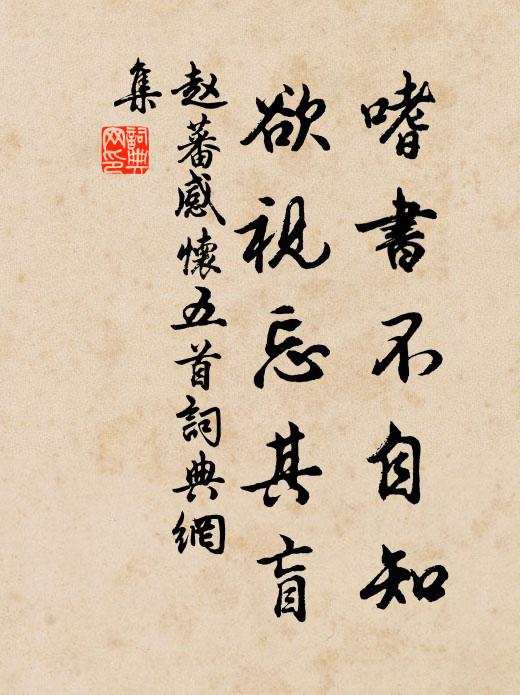 嗜書不自知
欲視忘其盲
赵蕃感懷五首詞典網
集
詞典
网印